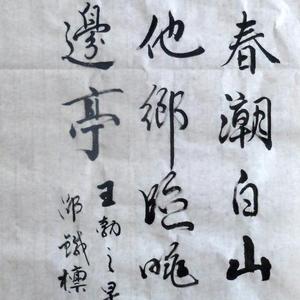 春潮白山
他鄉臨眺
邊亭
王勃之早